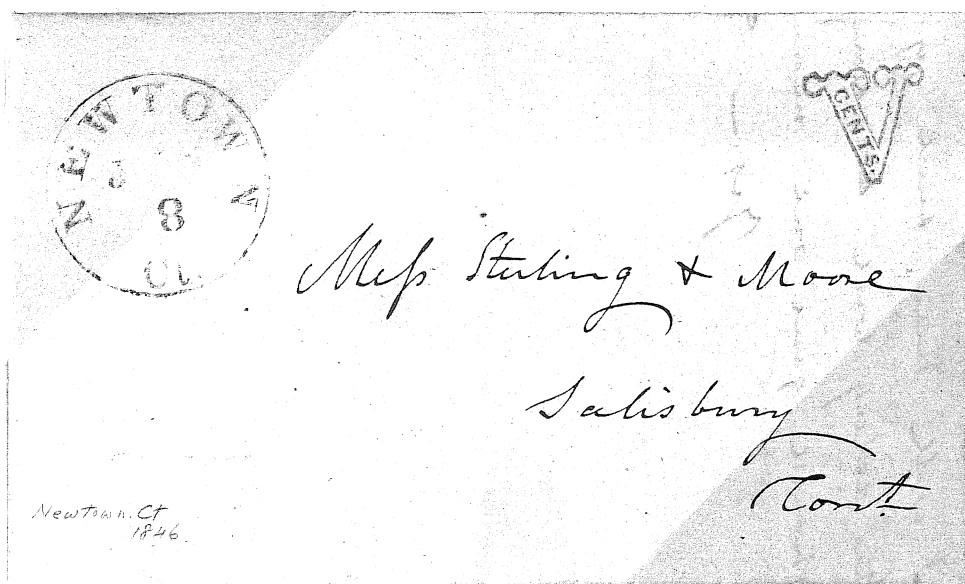 NEWTOWN
J 8
Ct.
V
CENTS.
Mess Sterling & Moore
Salisbury
Connt.
Newtown. Ct
1846.